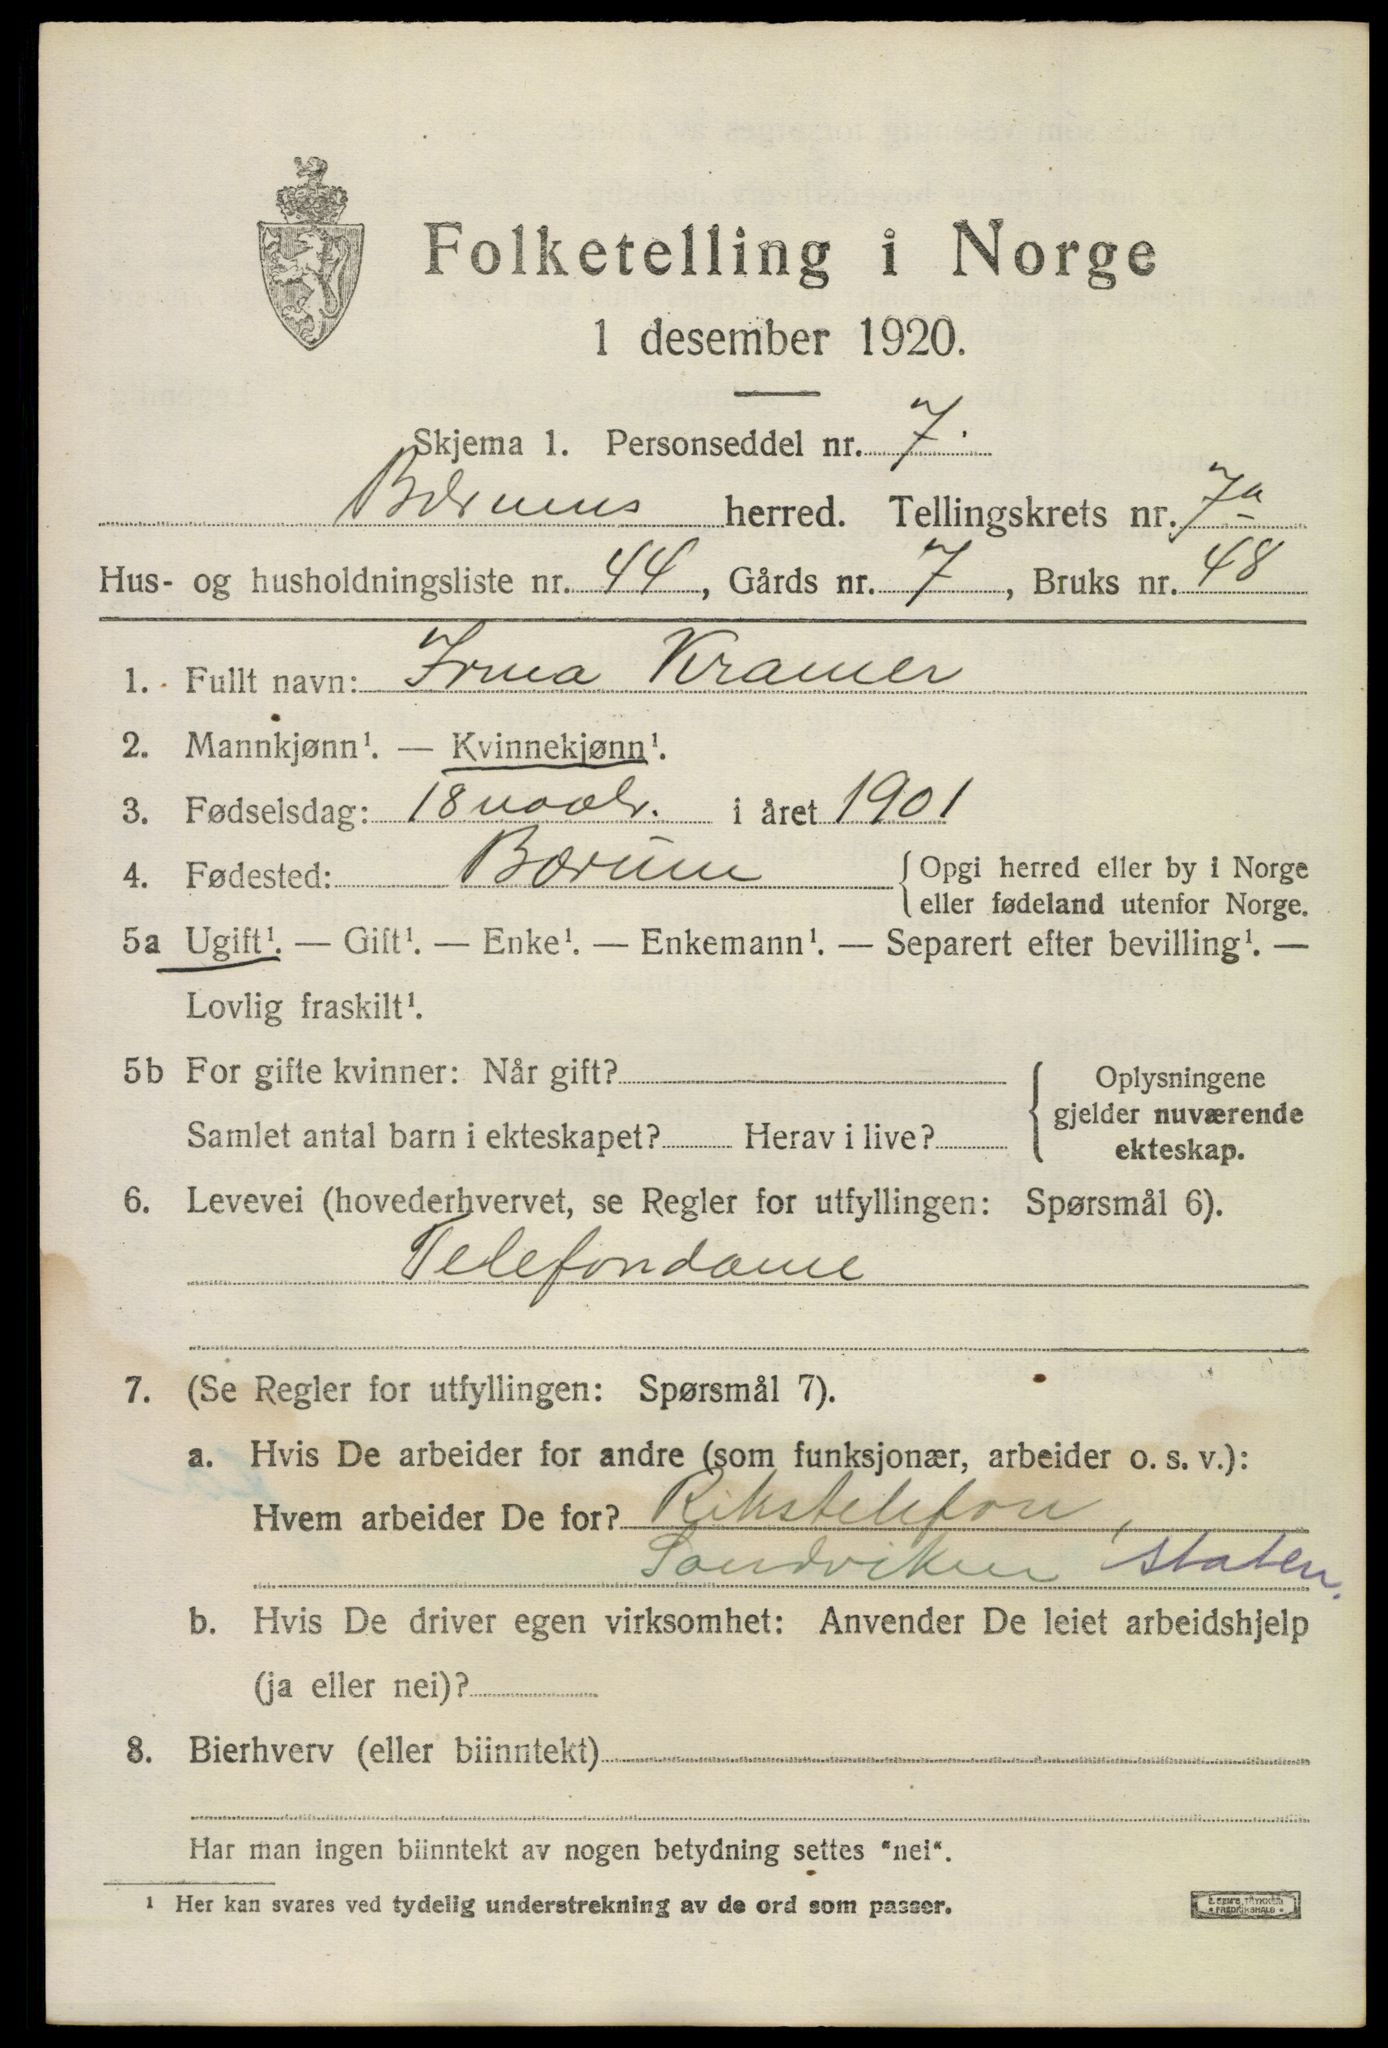 Folketelling i Norge
1 desember 1920.
Skjema 1. Personseddel nr. 7.
Bærums herred. Tellingskrets nr. 7a
Hus- og husholdningsliste nr. 44, Gårds nr. 7, Bruks nr. 48
1. Fullt navn: Irma Kramer
2. Mannkjønn¹. — Kvinnekjønn¹.
3. Fødselsdag: 18 novbr. i året 1901
4. Fødested: Bærum { Opgi herred eller by i Norge
eller fødeland utenfor Norge.
5a Ugift¹. — Gift¹. — Enke¹. — Enkemann¹. — Separert efter bevilling¹. —
Lovlig fraskilt¹.
5b For gifte kvinner: Når gift?
Samlet antal barn i ekteskapet? Herav i live?
{ Oplysningene
gjelder nuværende
ekteskap.
6. Levevei (hovederhvervet, se Regler for utfyllingen: Spørsmål 6).
Telefondame
7. (Se Regler for utfyllingen: Spørsmål 7).
a. Hvis De arbeider for andre (som funksjonær, arbeider o. s. v.):
Hvem arbeider De for? Rikstelefon,
Sandviken staten.
b. Hvis De driver egen virksomhet: Anvender De leiet arbeidshjelp
(ja eller nei)?
8. Bierhverv (eller biinntekt)
Har man ingen biinntekt av nogen betydning settes "nei".
¹ Her kan svares ved tydelig understrekning av de ord som passer.